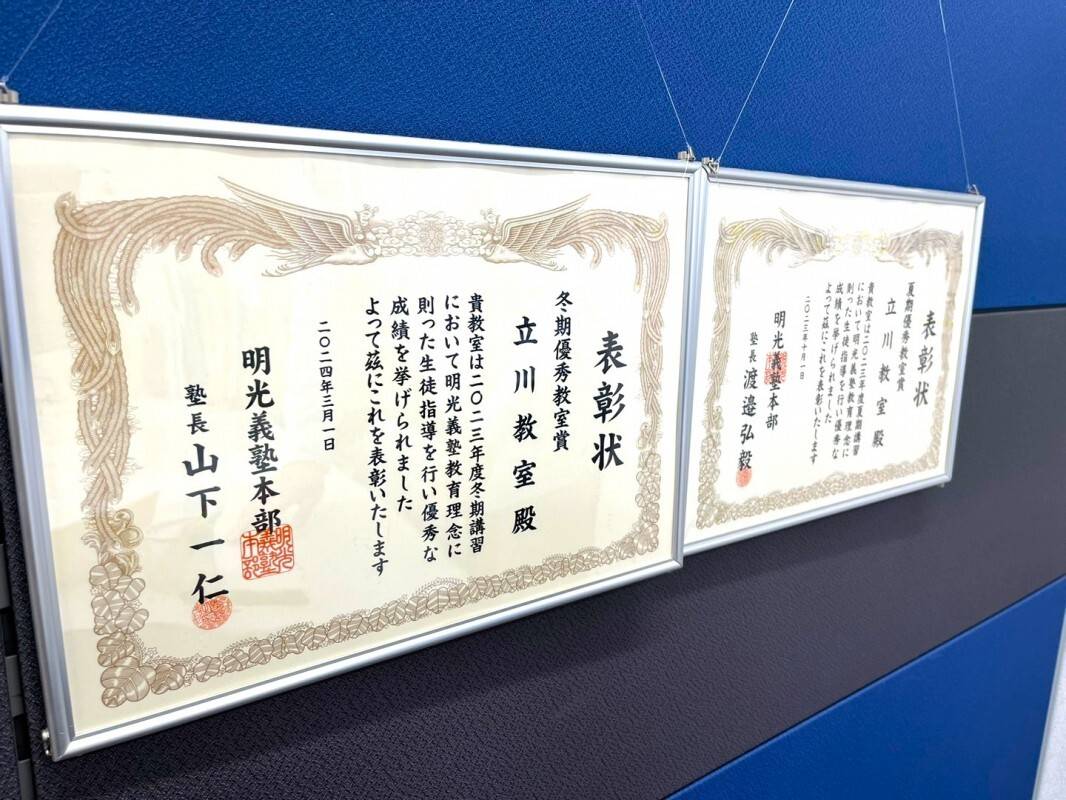 表彰状
冬期優秀教室賞
立川教室殿
貴教室は二〇二三年度冬期講習
において明光義塾教育理念に
則った生徒指導を行い優秀な
成績を挙げられました
よって茲にこれを表彰いたします
二〇二四年三月一日
明光義塾本部
塾長 山下一仁
明光
義塾
本部
表彰状
夏期優秀教室賞
立川教室殿
貴教室は二〇二三年度夏期講習
において明光義塾教育理念に
則った生徒指導を行い優秀な
成績を挙げられました
よって茲にこれを表彰いたします
二〇二三年十月一日
明光義塾本部
塾長 渡邉弘毅